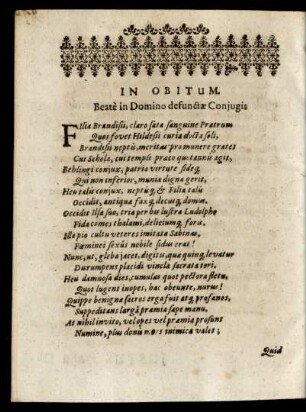 IN OBITUM.
Beatè in Domino defunctæ Conjugis
FIlia Brandisii, claro sata sanguine Pratrum
Quos fovet Hildesii curia docta soli,
Brandisii neptis, meritas pro munere grates
Cui Schola, cui templi præco quotannis agit,
Behlingi conjux, patria virtute fideq;
Qui non inferior, munia digna gerit,
Heu talis conjux, neptisq; & Filia talis
Occidit, antiqua fax q; decusq; domus.
Occidit Ilsa suo, tria per bis lustra Ludolpho
Fida comes thalami, deliciumq; fora.
Illa pio cultu veteres imitata Sabinas,
Fæminei sexûs nobile sidus erat!
Nunc, ut, gleba jacet, digitis quaquinq; levatur
Durumpens placidi vincla sacrata tori,
Heu damnosa dies, cumulas quot pectora fletu,
Quos lugent inopes, hac obeunte, nurus!
Quippe benigna sacros erga fuit atq; profanos,
Suppeditans largâ præmia sæpe manu.
At nihil invito, vel opes vel præmia prosunt
Numine, plus donis mors inimica valet;
Quid